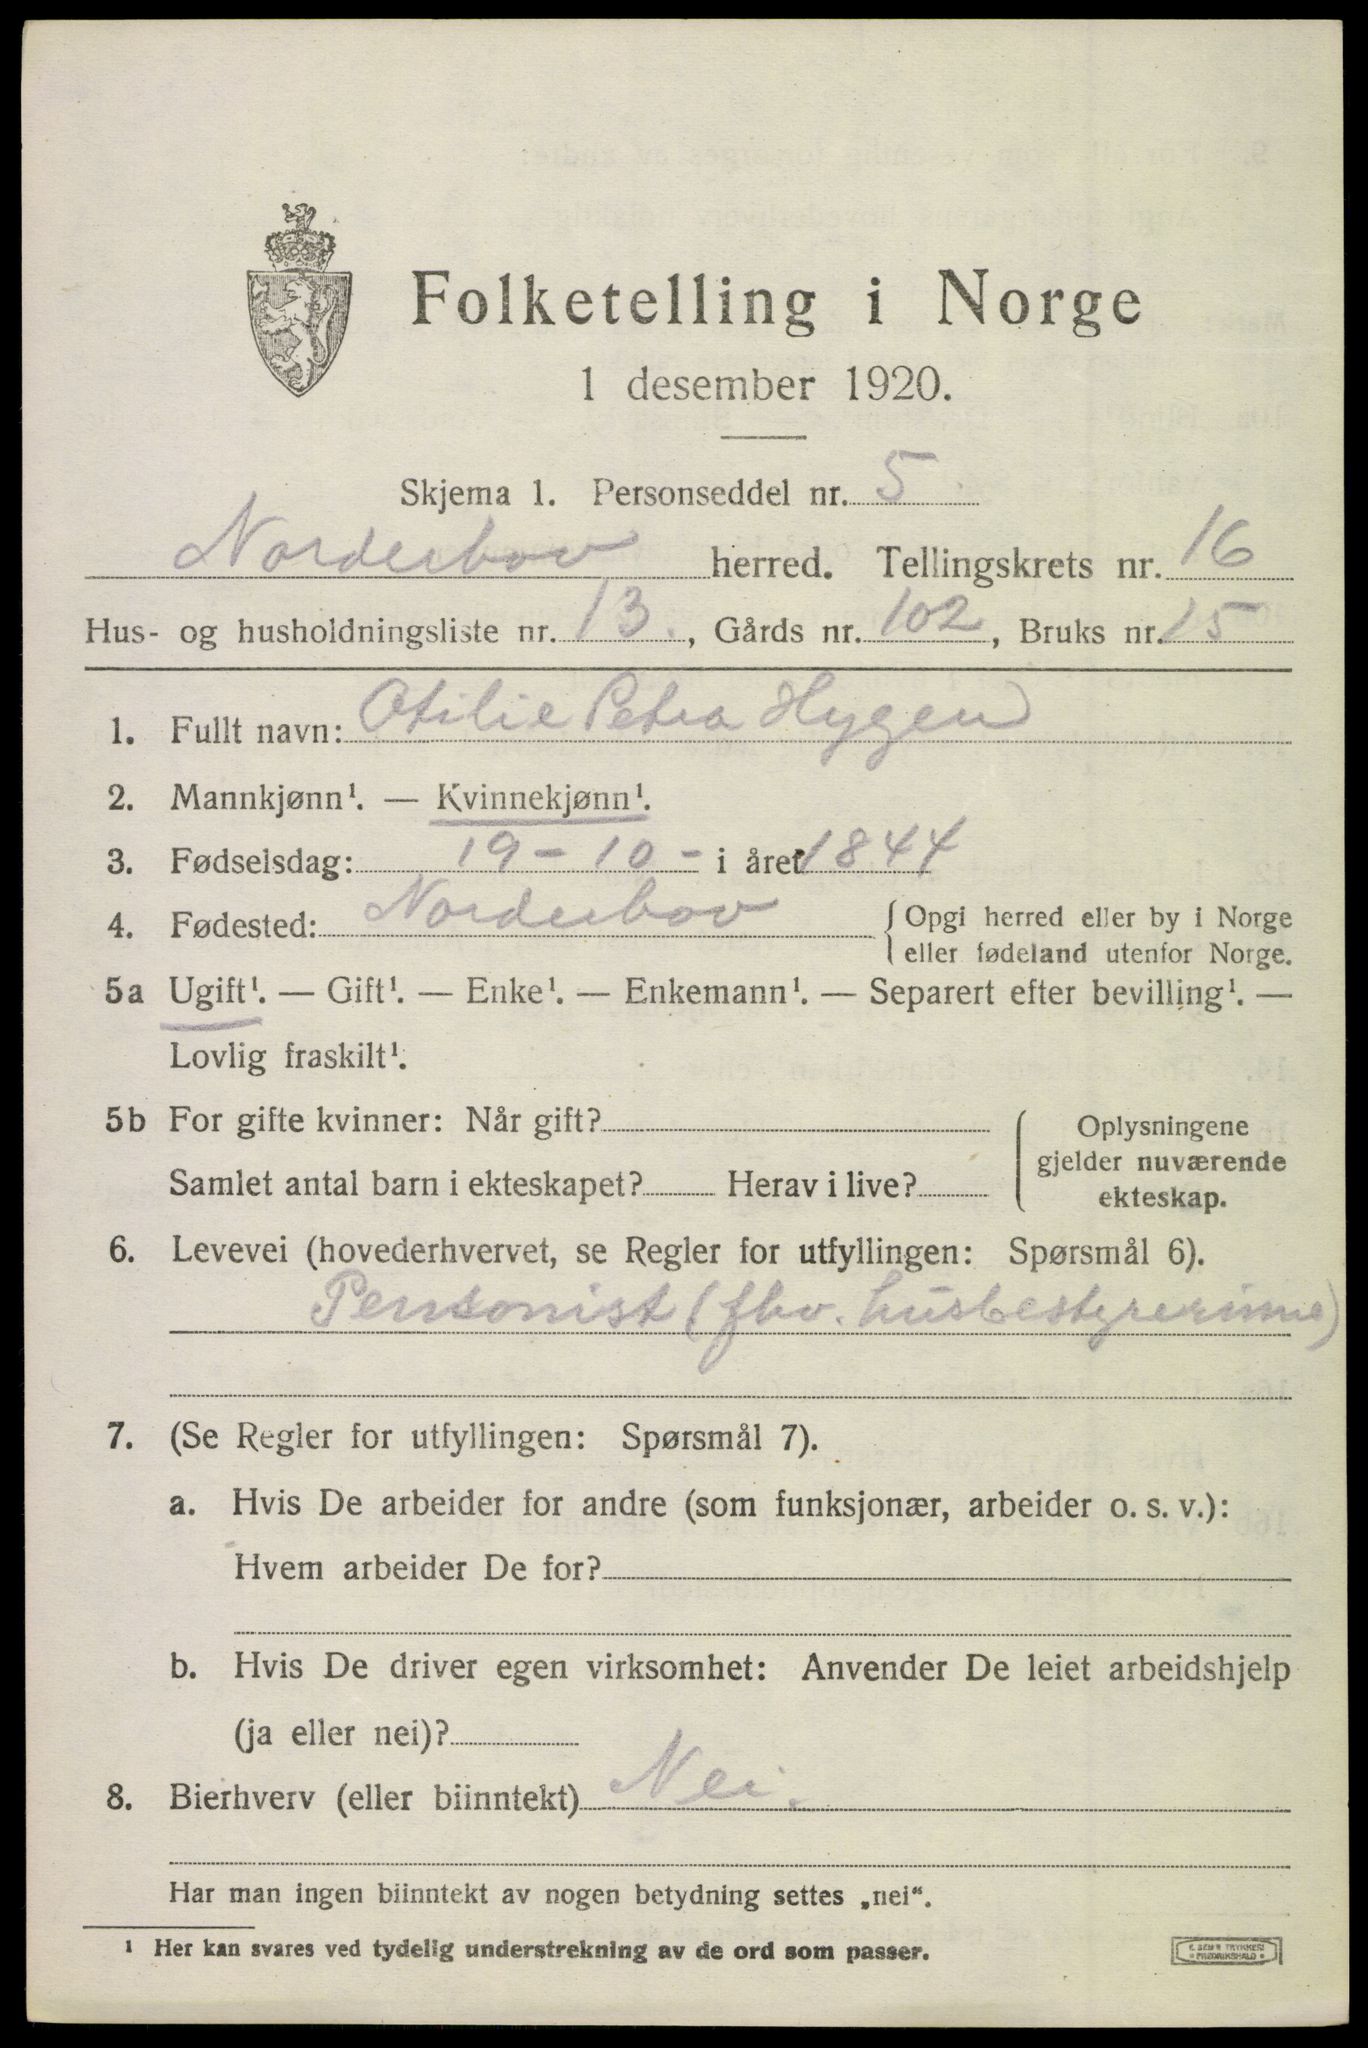 Folketelling i Norge
1 desember 1920.
Skjema 1. Personseddel nr. 5.
Norderhov herred. Tellingskrets nr. 16
Hus- og husholdningsliste nr. 13., Gårds nr. 102, Bruks nr. 15
1. Fullt navn: Otilie Petra Hygen
2. Mannkjønn¹. — Kvinnekjønn¹.
3. Fødselsdag: 19 – 10 – i året 1844
4. Fødested: Norderhov { Opgi herred eller by i Norge
eller fødeland utenfor Norge.
5a Ugift¹. — Gift¹. — Enke¹. — Enkemann¹. — Separert efter bevilling¹. —
Lovlig fraskilt¹.
5b For gifte kvinner: Når gift? { Oplysningene
gjelder nuværende
Samlet antal barn i ekteskapet? Herav i live? ekteskap.
6. Levevei (hovederhvervet, se Regler for utfyllingen: Spørsmål 6).
Pensonist (fhv. husbestyrerinne)
7. (Se Regler for utfyllingen: Spørsmål 7).
a. Hvis De arbeider for andre (som funksjonær, arbeider o. s. v.):
Hvem arbeider De for?
b. Hvis De driver egen virksomhet: Anvender De leiet arbeidshjelp
(ja eller nei)?
8. Bierhverv (eller biinntekt) Nei.
Har man ingen biinntekt av nogen betydning settes „nei“.
¹ Her kan svares ved tydelig understrekning av de ord som passer.
E. SEM'S TRYKKERI
FREDRIKSHALD